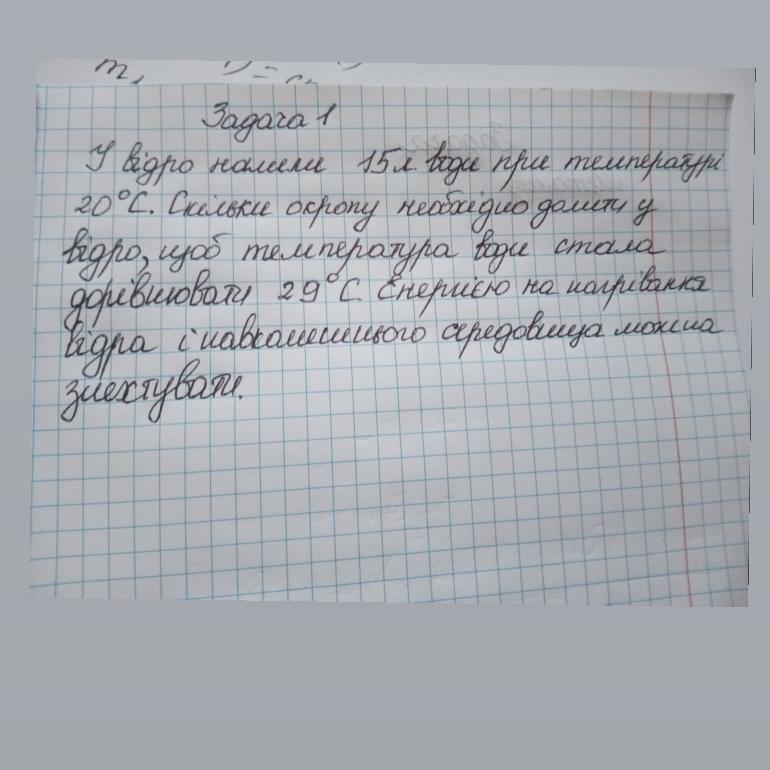 Задача 1
У відро налили 15 л. води при температурі
20°С. Скільки окропу необхідно долити у
відро, щоб температура води стала
дорівнювати 29°С. Енергією на нагрівання
відра і навколишнього середовища можна
знехтувати.